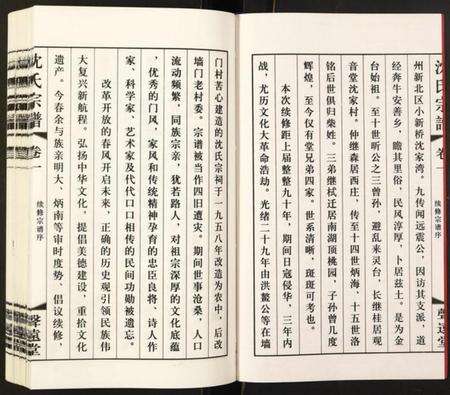 沈氏宗譜
卷一
续修宗谱序
聲遠堂
州新北区小新桥沈家湾。九传闻远震公，因访其支派，道
经奔牛安善乡，瞻其里俗，民风淳厚，卜居兹土。是为金
台始祖。至十世昕公之三曾孙，避乱来灵台，长继桂居观
音堂沈家村。仲继森居西庄，传至十四世炳海，十五世洛
铭后世俱归柴姓。三弟继栻迁居南湖顶桃园，子孙曾几度
辉煌，至今仅有堂兄弟四家。世系清晰，斑斑可考也。
本次续修距上届整整九十年，期间日寇侵华，三年内
战，尤历文化大革命浩劫。光绪二十九年由洪懿公等在墙
门村苦心建造的沈氏宗祠于一九五八年改造为农中，后改
墙门老村委。宗谱被当作四旧遭灾。期间世事沧桑，人口
流动频繁，同族宗亲，犹若路人，对祖宗深厚的文化底蕴
，优秀的门风，家风和传统精神孕育的忠臣良将，诗人作
家，科学家、艺术家及代代口口相传的民间功勋被遗忘。
改革开放的春风开启未来，正确的历史观引领民族伟
大复兴新航程，弘扬中华文化，提倡美德建设，重拾文化
遗产。今春余与族亲明大、炳南等审时度势、倡议续修，
沈氏宗譜
卷一
续修宗谱序
聲遠堂